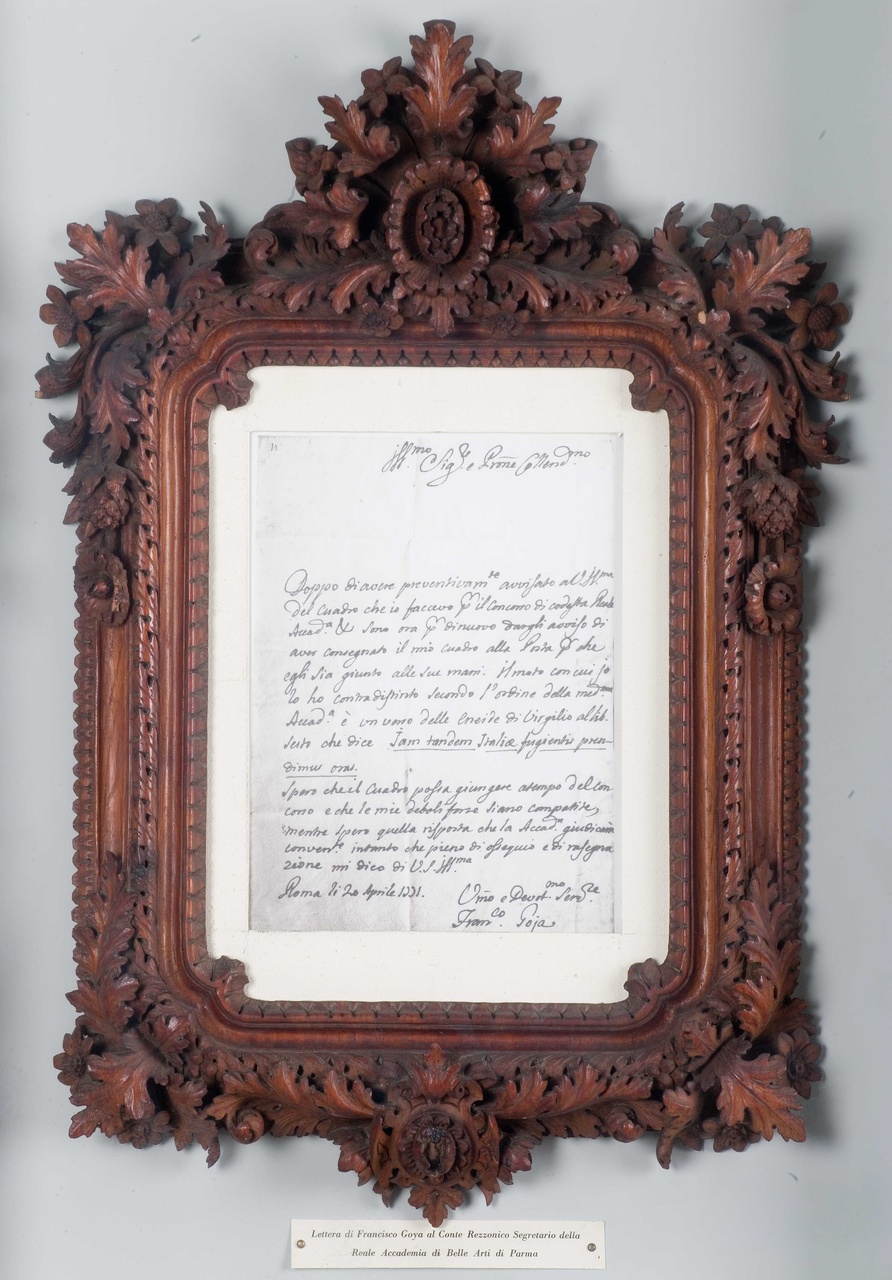 Ill.mo Sig.re e Prōne Collend.mo
Doppo di avere preventivam.te avvisato al V.S. Ill.ma
del Cuadro che io facevo p. il Concorso di codesta Reale
Accad.a & sono ora p. di nuovo dargli avviso di
aver consegnato il mio cuadro alla Posta p. che
egli sia giunto alle sue mani. Il moto con cui io
lo ho contradistinto secondo l'ordine della med.ma
Accad.a è un verso delle Eneide di Virgilio al lib.
sesto che dice Iam tandem Italiæ fugientis pren-
dimus oras.
Spero che il Cuadro possa giungere a tempo del Con
corso e che le mie deboli forze siano compatite,
mentre spero quella risposta che la Accad.a giudicara
conven.te intanto che pieno di ossequio e di rasegna
zione mi dico di V.S. Ill.ma
Roma li 20 Aprile 1771. Umo e Devot.mo Serv.re
Fran.co Goja
Lettera di Francisco Goya al Conte Rezzonico Segretario della
Reale Accademia di Belle Arti di Parma